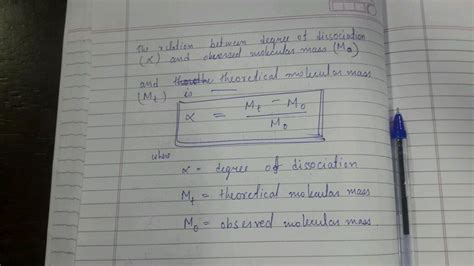 The relation between degree of dissociation
(α) and observed molecular mass (M₀)
and theoretical molecular mass
(Mₜ) is
α = Mₜ - M₀ / M₀
where
α = degree of dissociation
Mₜ = theoretical molecular mass
M₀ = observed molecular mass